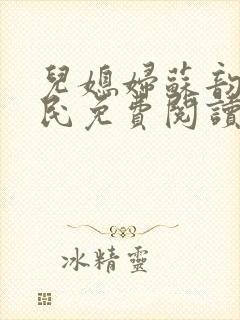 兒媳婦蘇韵
民免費閱讀
冰精靈